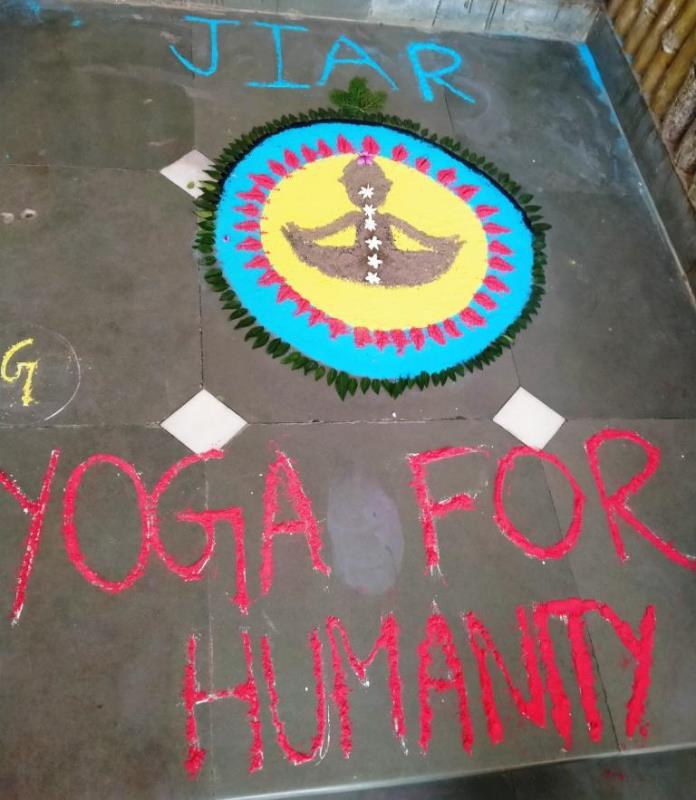 JIAR
G
YOGA FOR
HUMANITY